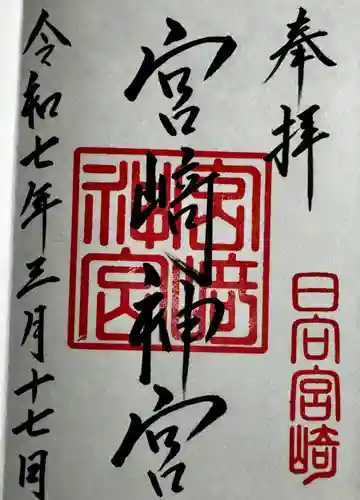 奉拝
日向宮崎
宮﨑神宮
宮﨑神宮
令和七年三月十七日